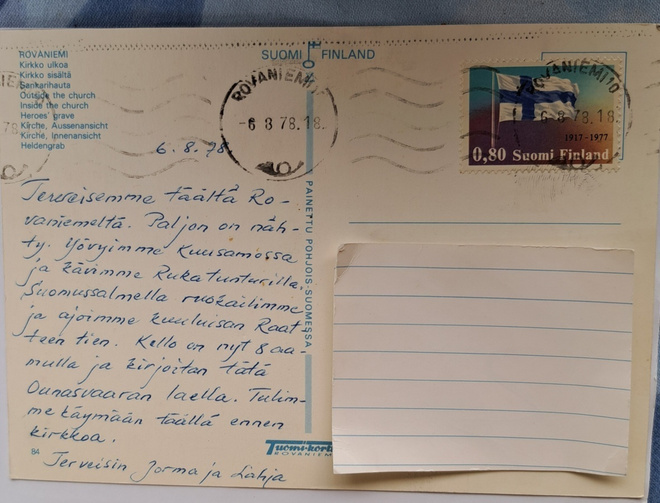 ROVANIEMI
Kirkko ulkoa
Kirkko sisältä
Sankarihauta
Outside the church
Inside the church
Heroes' grave
Kirche, Aussenansicht
Kirche, Innenansicht
Heldengrab
SUOMI
FINLAND
ROVANIEMI 10
-6 8 78.18
ROVANIEMI 10
6 8 78.18
1917-1977
0,80 Suomi Finland
6.8.78
Terveisemme täältä Ro-
vaniemeltä. Paljon on näh-
ty. Yövyimme Kuusamossa
ja kävimme Rukatunturilla.
Suomussalmella ruokailimme
ja ajoimme kuuluisan Raat-
teen tien. Kello on nyt 8 aa-
mulla ja kirjoitan tätä
Ounasvaaran laella. Tulim-
me käymään täällä ennen
kirkkoa.
Terveisin Jorma ja Lahja
84
PAINETTU POHJOIS-SUOMESSA
Tuomi-kortti
ROVANIEMI